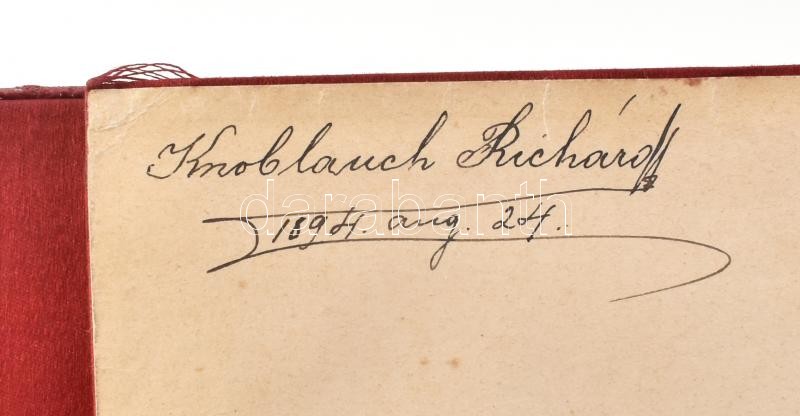 Knoblauch Richárd
1894. aug. 24.
darabanth